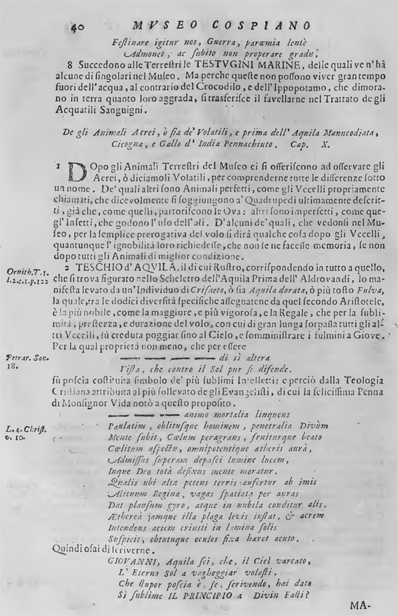 40 MVSEO COSPIANO
Festinare igitur nos, Gnerra, parœmia lentè
Admonet, ac subito non properare gradu.
8 Succedono alle Terrestri le TESTVGINI MARINE, delle quali ve n'hà
alcune di singolari nel Museo. Ma perche queste non possono viver gran tempo
fuori dell'acqua, al contrario del Crocodilo, e dell'Ippopotamo, che dimora-
no in terra quanto loro aggrada, si trasferisce il favellarne nel Trattato de gli
Acquatili Sanguigni.
De gli Animali Aerei, è sia de' Volatili, e prima dell' Aquila Manucodiata,
Cicogna, e Gallo d' India Pennachiuto. Cap. X.
1 DOpo gli Animali Terrestri del Museo ci si offeriscono ad osservare gli
Aerei, ò diciamoli Volatili, per comprenderne tutte le differenze sotto
un nome. De' quali altri sono Animali perfetti, come gli Vccelli propriamente
chiamati, che dicevolmente si soggiungono a' Quadrupedi ultimamente descrit-
ti, già che, come quelli, partoriscono le Ova: altri sono imperfetti, come que-
gl' Insetti, che godono l'uso dell'ali. D'alcuni de' quali, che vedonsi nel Mu-
seo, per la semplice prerogativa del volo si dirà qualche cosa dopo gli Vccelli,
quantunque l'ignobilità loro richiedesse, che non se ne facesse memoria, se non
dopo tutti gli Animali di miglior condizione.
2 TESCHIO d'AQVILA, il di cui Rostro, corrispondendo in tutto a quello,
Ornith. T. 1.
l. 2. c. 1. p. 122
che si trova figurato nello Scheletro dell'Aquila Prima dell'Aldrovandi, lo ma-
nifesta levato da un'Individuo di Criseeto, ò sia Aquila dorata, ò più tosto Fulva,
la quale, tra le dodici diversità specifiche assegnate da quel secondo Aristotele,
è la più nobile, come la maggiore, e più vigorosa, e la Regale, che per la subli-
mità, prestezza, e durazione del volo, con cui di gran lunga sorpassa tutti gli al-
tri Vccelli, fù creduta poggiar sino al Cielo, e somministrare i fulmini a Giove.
Per la qual proprietà non meno, che per essere
Petrar. Son.
18.
— — — — di sì altera
Vista, che contro il Sol pur si difende.
fù poscia costituita simbolo de' più sublimi Intelletti: e perciò dalla Teologia
Cristiana attribuita al più sollevato de gli Evangelisti, di cui la felicissima Penna
di Monsignor Vida notò a questo proposito.
L. 4. Christ.
v. 10.
— — — — animo mortalia linquens
Paulatim, oblitusque hominem, penetralia Divûm
Mente subit, Cœlum peragrans, fruiturque beato
Cœlitum aspectu, omnipotentique ætheris aurâ,
Admissus superam depasci lumine lucem,
Inque Deo totâ defixus mente moratur.
Qualis ubi alta petens terris aufertur ab imis
Alituum Regina, vagas spatiata per auras
Dat plausum gyro, atque in nubila conditur alis.
Æthereâ jamque illa plaga levis instat, & acrem
Intendens aciem crinitis in lumina solis
Suspicit, obtutuque oculos fixa hæret acuto.
Quindi osai di scriverne.
GIOVANNI, Aquila sei, che, il Ciel varcato,
L' Eterno Sol a vagheggiar volasti.
Che stupor poscia è, se, scrivendo, hai dato
Sì sublime IL PRINCIPIO a Divin Fasti?
MA-